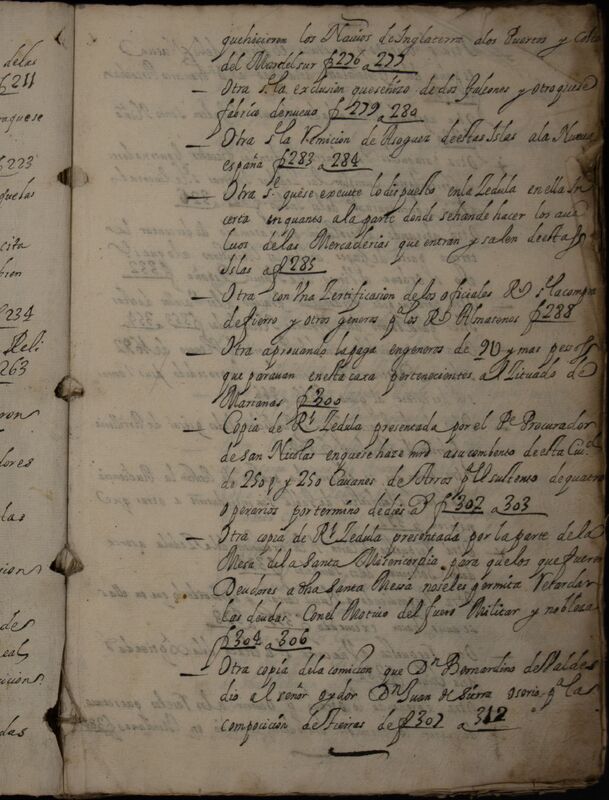 delas
f 211
raquese
f 223
quelas
cita
bien
f 234
Reli
263
dores
das
de
eal
das
quehicieron los Navios de Inglaterra alos Puertos y Costa
del Mardelsur f 276 a 277
— Otra sre la exclusion quesehizo de dos Galeones y otro quese
fabrico denuevo f 279 a 280
— Otra sre la Remicion de Asogues deestas Islas ala Nueva
españa f 283 a 284
— Otra sre quese execute lo dispuesto enla Zedula en ella In
certa en quanto ala parte donde sehande hacer los ava
luos de las Mercaderias que entran y salen deestas
Islas a f 285
— Otra con Vna Zertificasion de los oficiales Rs sre la compra
de fierro y otros generos pa los Rs Almasenes f 288
— Otra aprovando lapaga engeneros de y mas pesos
que paravan enesta caxa pertenecientes al Situado de
Marianas f 300
— Copia de Rl Zedula presentada por el Pe Procurador
de san Nicolas en quese haze mrd asu combento de esta Ciud
de 250 p y 250 Cavanes de Arros pa el sustento de quatro
operarios por termino de dies as f 302 a 303
— Otra copia de Rl Zedula presentada por la parte de la
Mesa dela Santa Misericordia para que los que fueren
Deudores a dha santa Messa noseles permita Retardar
las deudas Con el Motivo del fuero Militar y noblesa
f 304 a 306
— Otra copia dela comicion que Dn Bernardino de Valdes
dio al señor oydor Dn Juan de Sierra osorio pa las
composicion de tierras de f 307 a 312